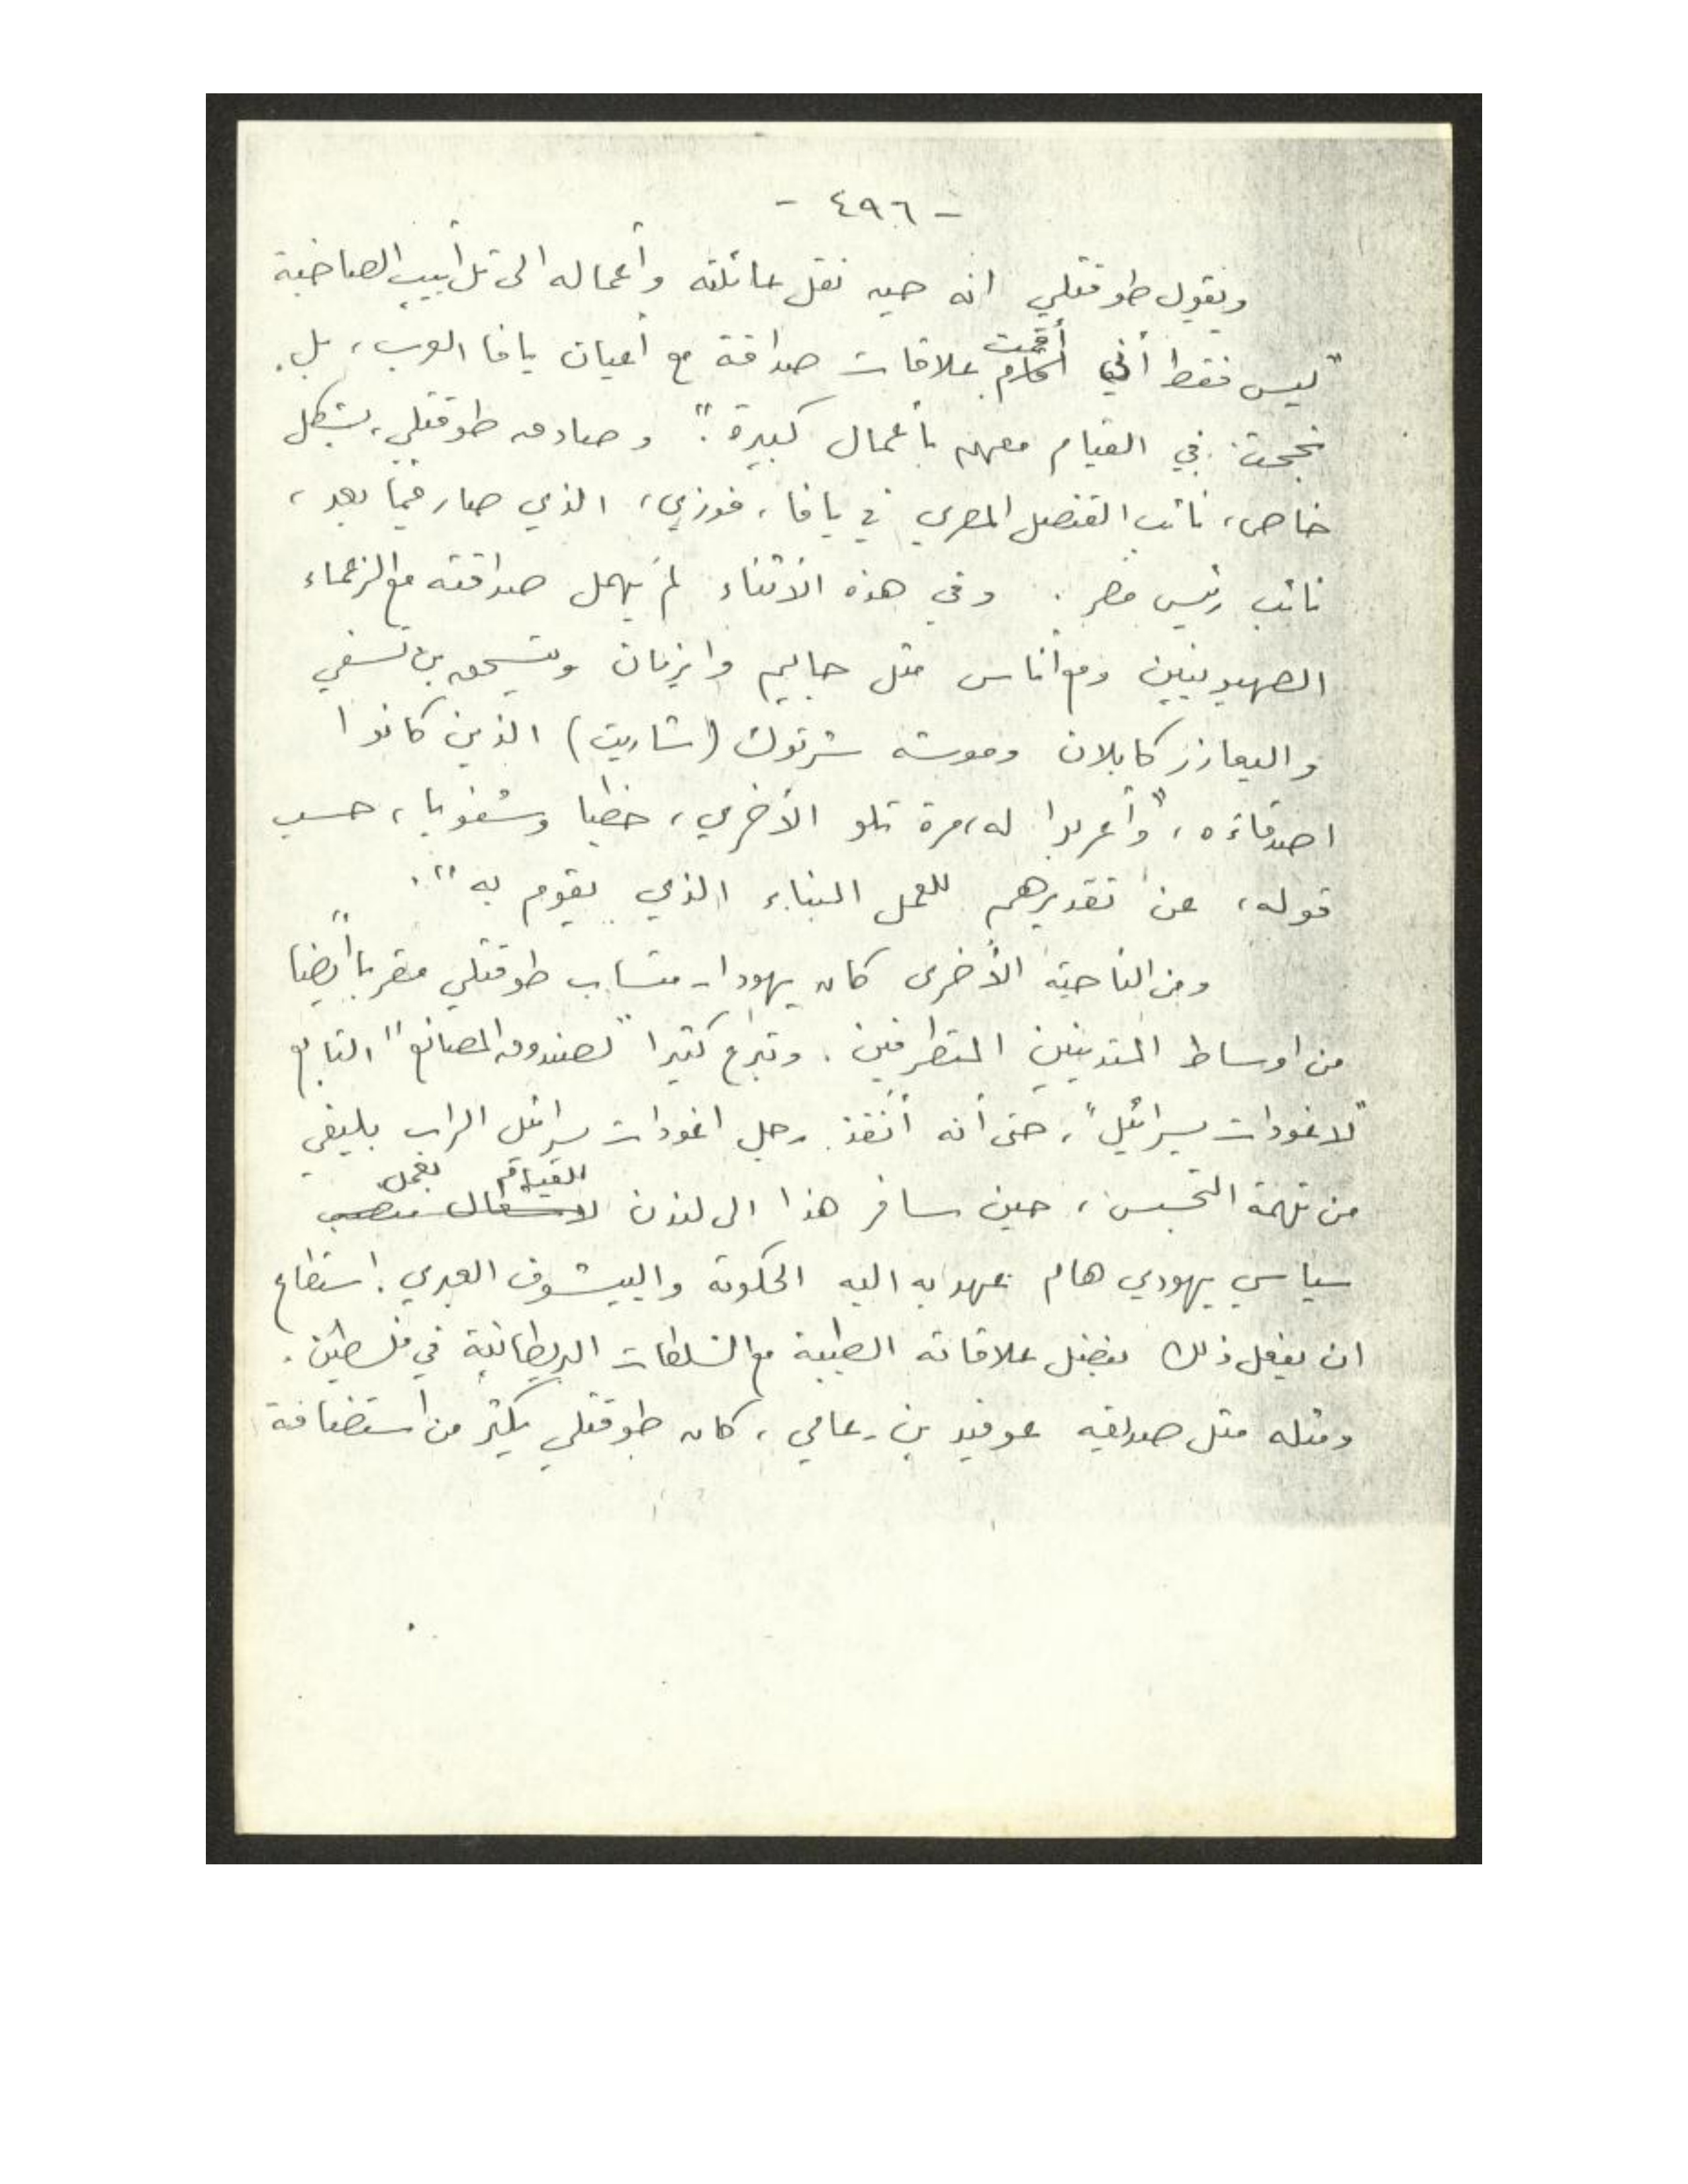 - ٤٩٦ -
ويقول طوقتلي انه حين نقل عائلته وأعماله الى تل أبيب الصاخبة
"ليس فقط أني أقمت علاقات صداقة مع أعيان يافا العرب، بل
نجحت في القيام معهم بأعمال كبيرة". وصادق طوقتلي، بشكل
خاص، نائب القنصل المصري في يافا، فوزي، الذي صار فيما بعد،
نائب رئيس مصر. وفي هذه الاثناء لم يهمل صداقته مع الزعماء
الصهيونيين ومع أناس مثل حاييم وايزمان ويتسحق بن تسفي
واليعازر كابلان وموشه شرتوك (شاريت) الذين كانوا
اصدقاءه، "وأعربوا له، مرة تلو الأخرى، خطيا وشفويا، حسب
قوله، عن تقديرهم للعمل البناء الذي يقوم به".
ومن الناحية الأخرى كان يهودا - متساب طوقتلي مقربا أيضا
من اوساط المتدينين المتطرفين. وتبرع كثيرا "لصندوق المصانع" التابع
"لاغودات يسرائيل"، حتى أنه أنقذ رجل اغودات يسرائيل الراب بليفي
من تهمة التجسس، حين سافر هذا الى لندن للقيام بعمل
سياسي يهودي هام عهد به اليه الحكومة والييشوف العبري. استطاع
ان يفعل ذلك بفضل علاقاته الطيبة مع السلطات البريطانية في فلسطين.
ومثله مثل صديقه عوفيد بن - عامي، كان طوقتلي يكثر من استضافة